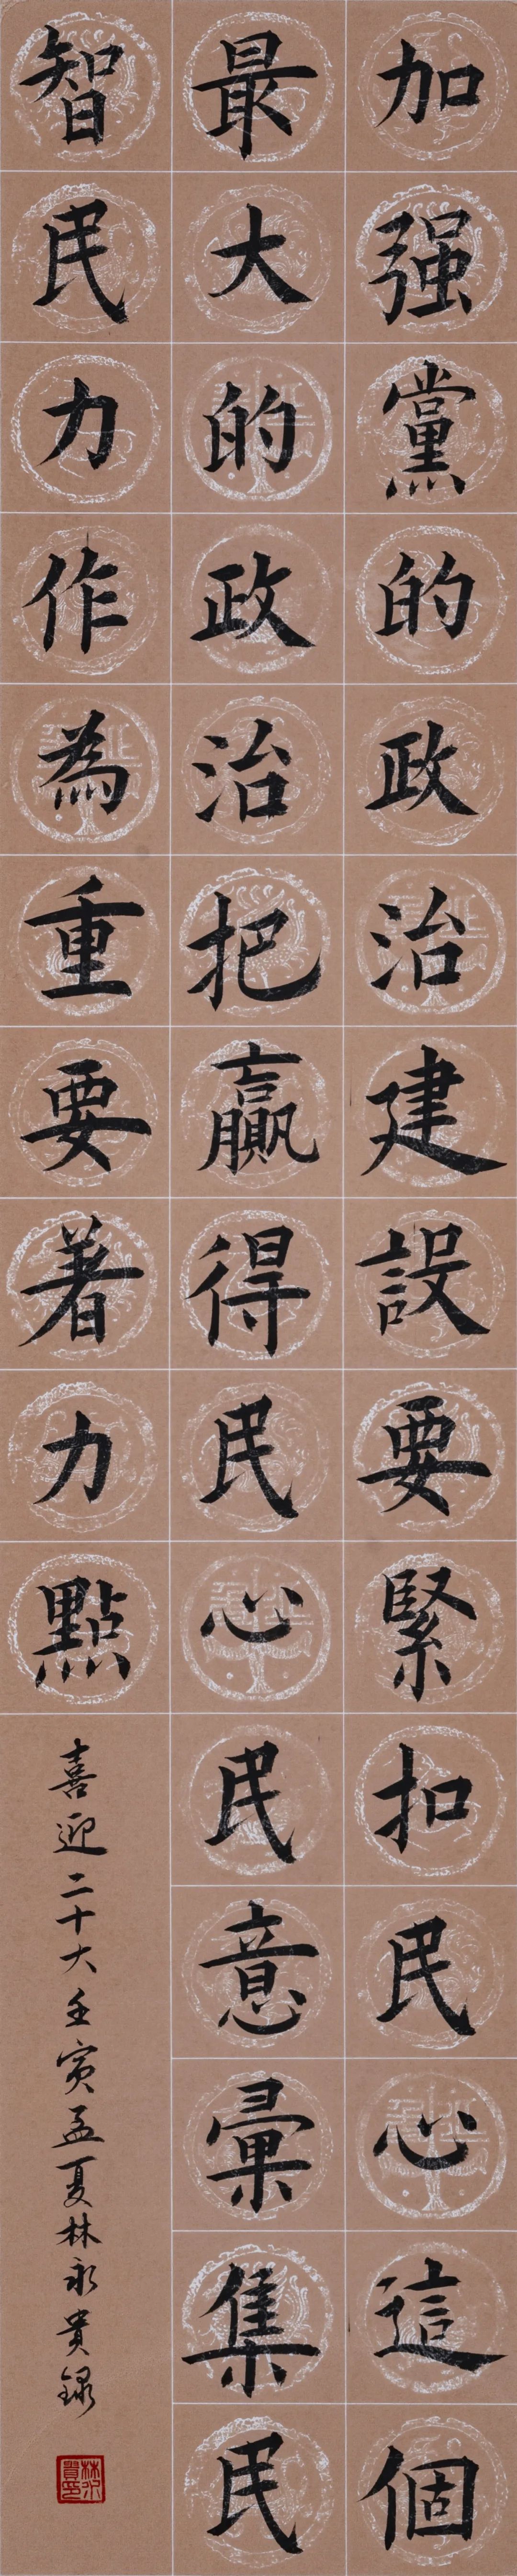 加强黨的政治建設要緊扣民心這個
最大的政治把贏得民心民意彙集民
智民力作為重要著力點
喜迎二十大壬寅孟夏林永貴録
林永貴印